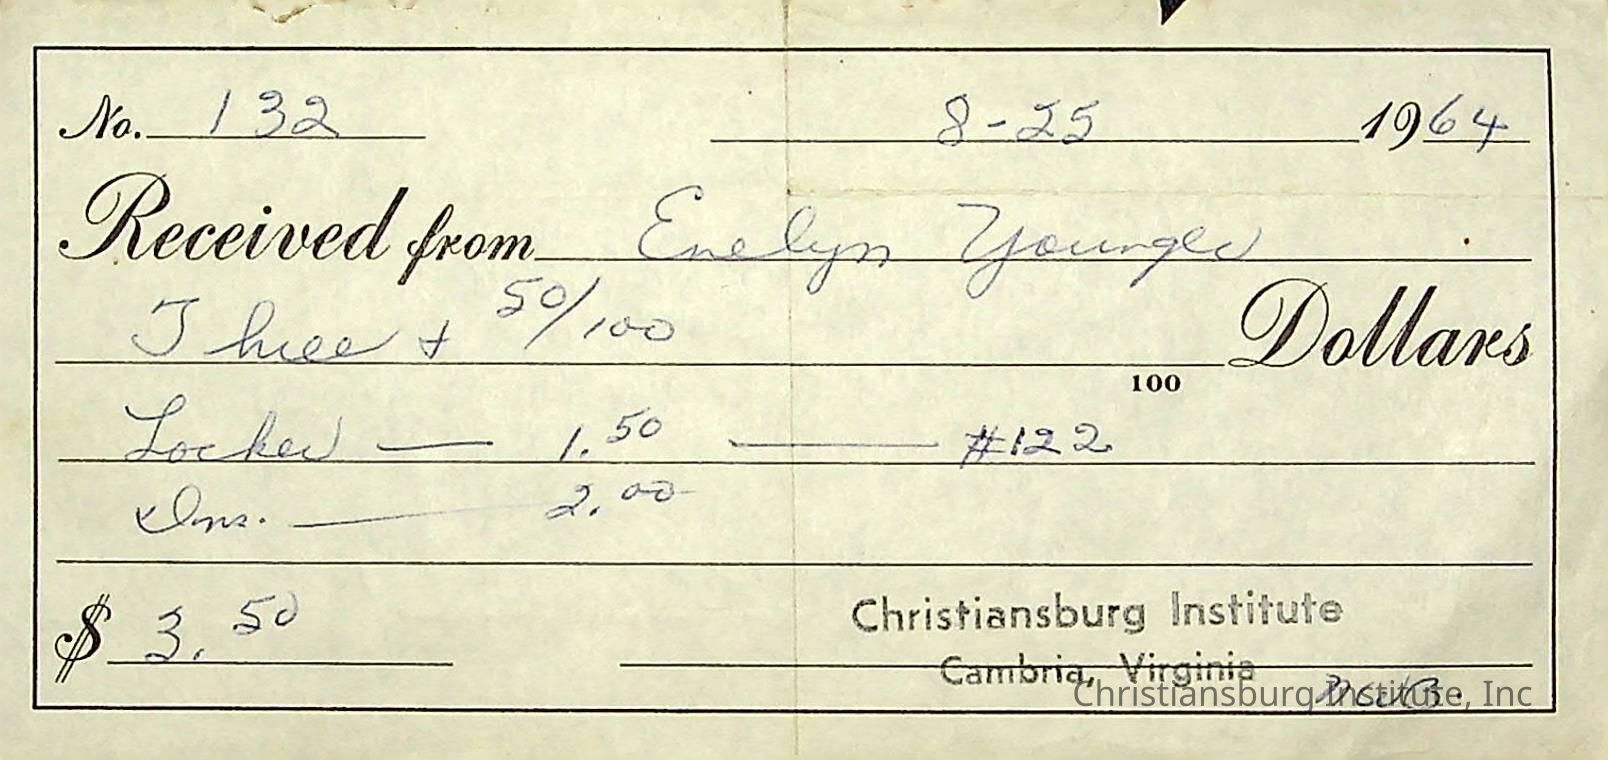 No. 132 8-25 1964
Received from Evelyn Younger
Three + 50/100 Dollars
100
Locker — 1.50 — #122
Ins. — 2.00
$ 3.50
Christiansburg Institute
Cambria, Virginia
Christiansburg Institute, Inc